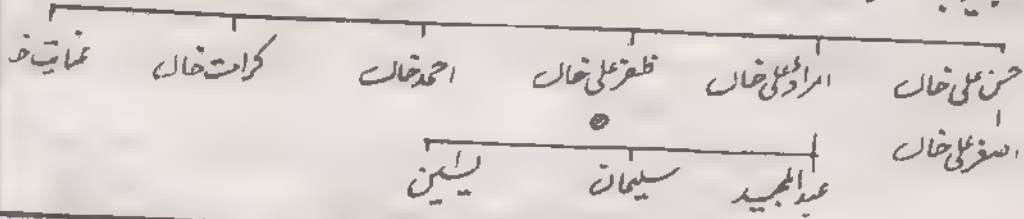 حسن علی خاں امراؤ علی خاں ظفر علی خاں احمد خاں کرامت خاں عنایت خ
اصغر علی خاں
عبدالمجید سلیمان یٰسین